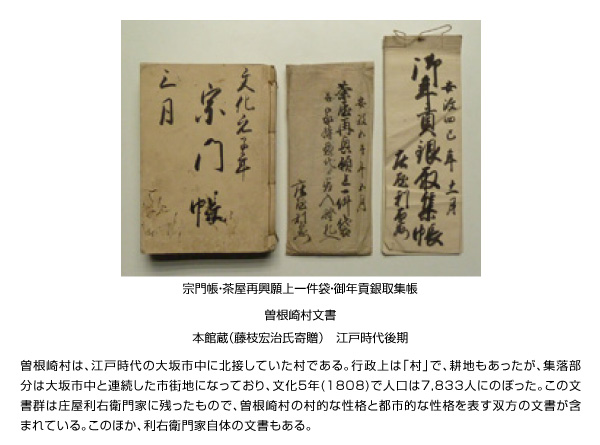 文化元子年
宗門帳
三月
安政五午年五月
茶屋再興願上一件袋
庄屋利右衛門
安政四巳年十一月
御年貢銀取集帳
庄屋利右衛門
宗門帳・茶屋再興願上一件袋・御年貢銀取集帳
曽根崎村文書
本館蔵（藤枝宏治氏寄贈）　江戸時代後期
曽根崎村は、江戸時代の大坂市中に北接していた村である。行政上は「村」で、耕地もあったが、集落部
分は大坂市中と連続した市街地になっており、文化5年（1808）で人口は7,833人にのぼった。この文
書群は庄屋利右衛門家に残ったもので、曽根崎村の村的な性格と都市的な性格を表す双方の文書が含
まれている。このほか、利右衛門家自体の文書もある。